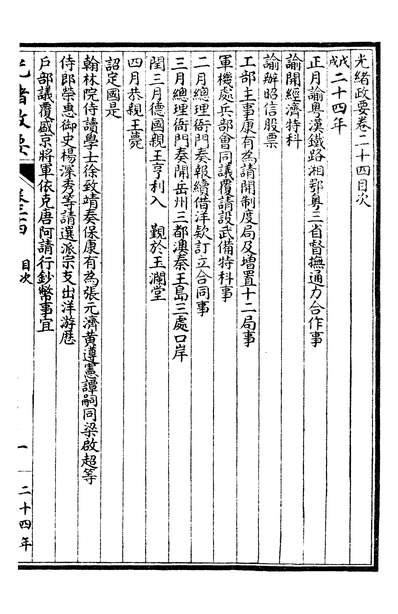 光緒政要卷二十四目次
戊戌二十四年
正月諭粵漢鐵路湘鄂粵三省督撫通力合作事
諭開經濟特科
諭辦昭信股票
工部主事康有為請開制度局及增置十二局事
軍機處兵部會同議覆請設武備特科事
二月總理衙門奏報續借洋款訂立合同事
三月總理衙門奏開岳州三都澳秦王島三處口岸
閏三月德國親王亨利入 覲於玉瀾堂
四月恭親王薨
詔定國是
翰林院侍讀學士徐致靖奏保康有為張元濟黃遵憲譚嗣同梁啟超等
侍郎榮惠御史楊深秀等請選派宗支出洋游歷
戶部議覆盛京將軍依克唐阿請行鈔幣事宜
光緒政要 卷二十四 目次 一 二十四年